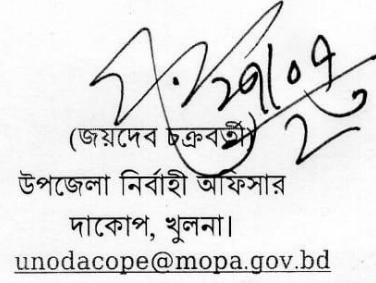 (জয়দেব চক্রবর্তী)
উপজেলা নির্বাহী অফিসার
দাকোপ, খুলনা।
unodacope@mopa.gov.bd